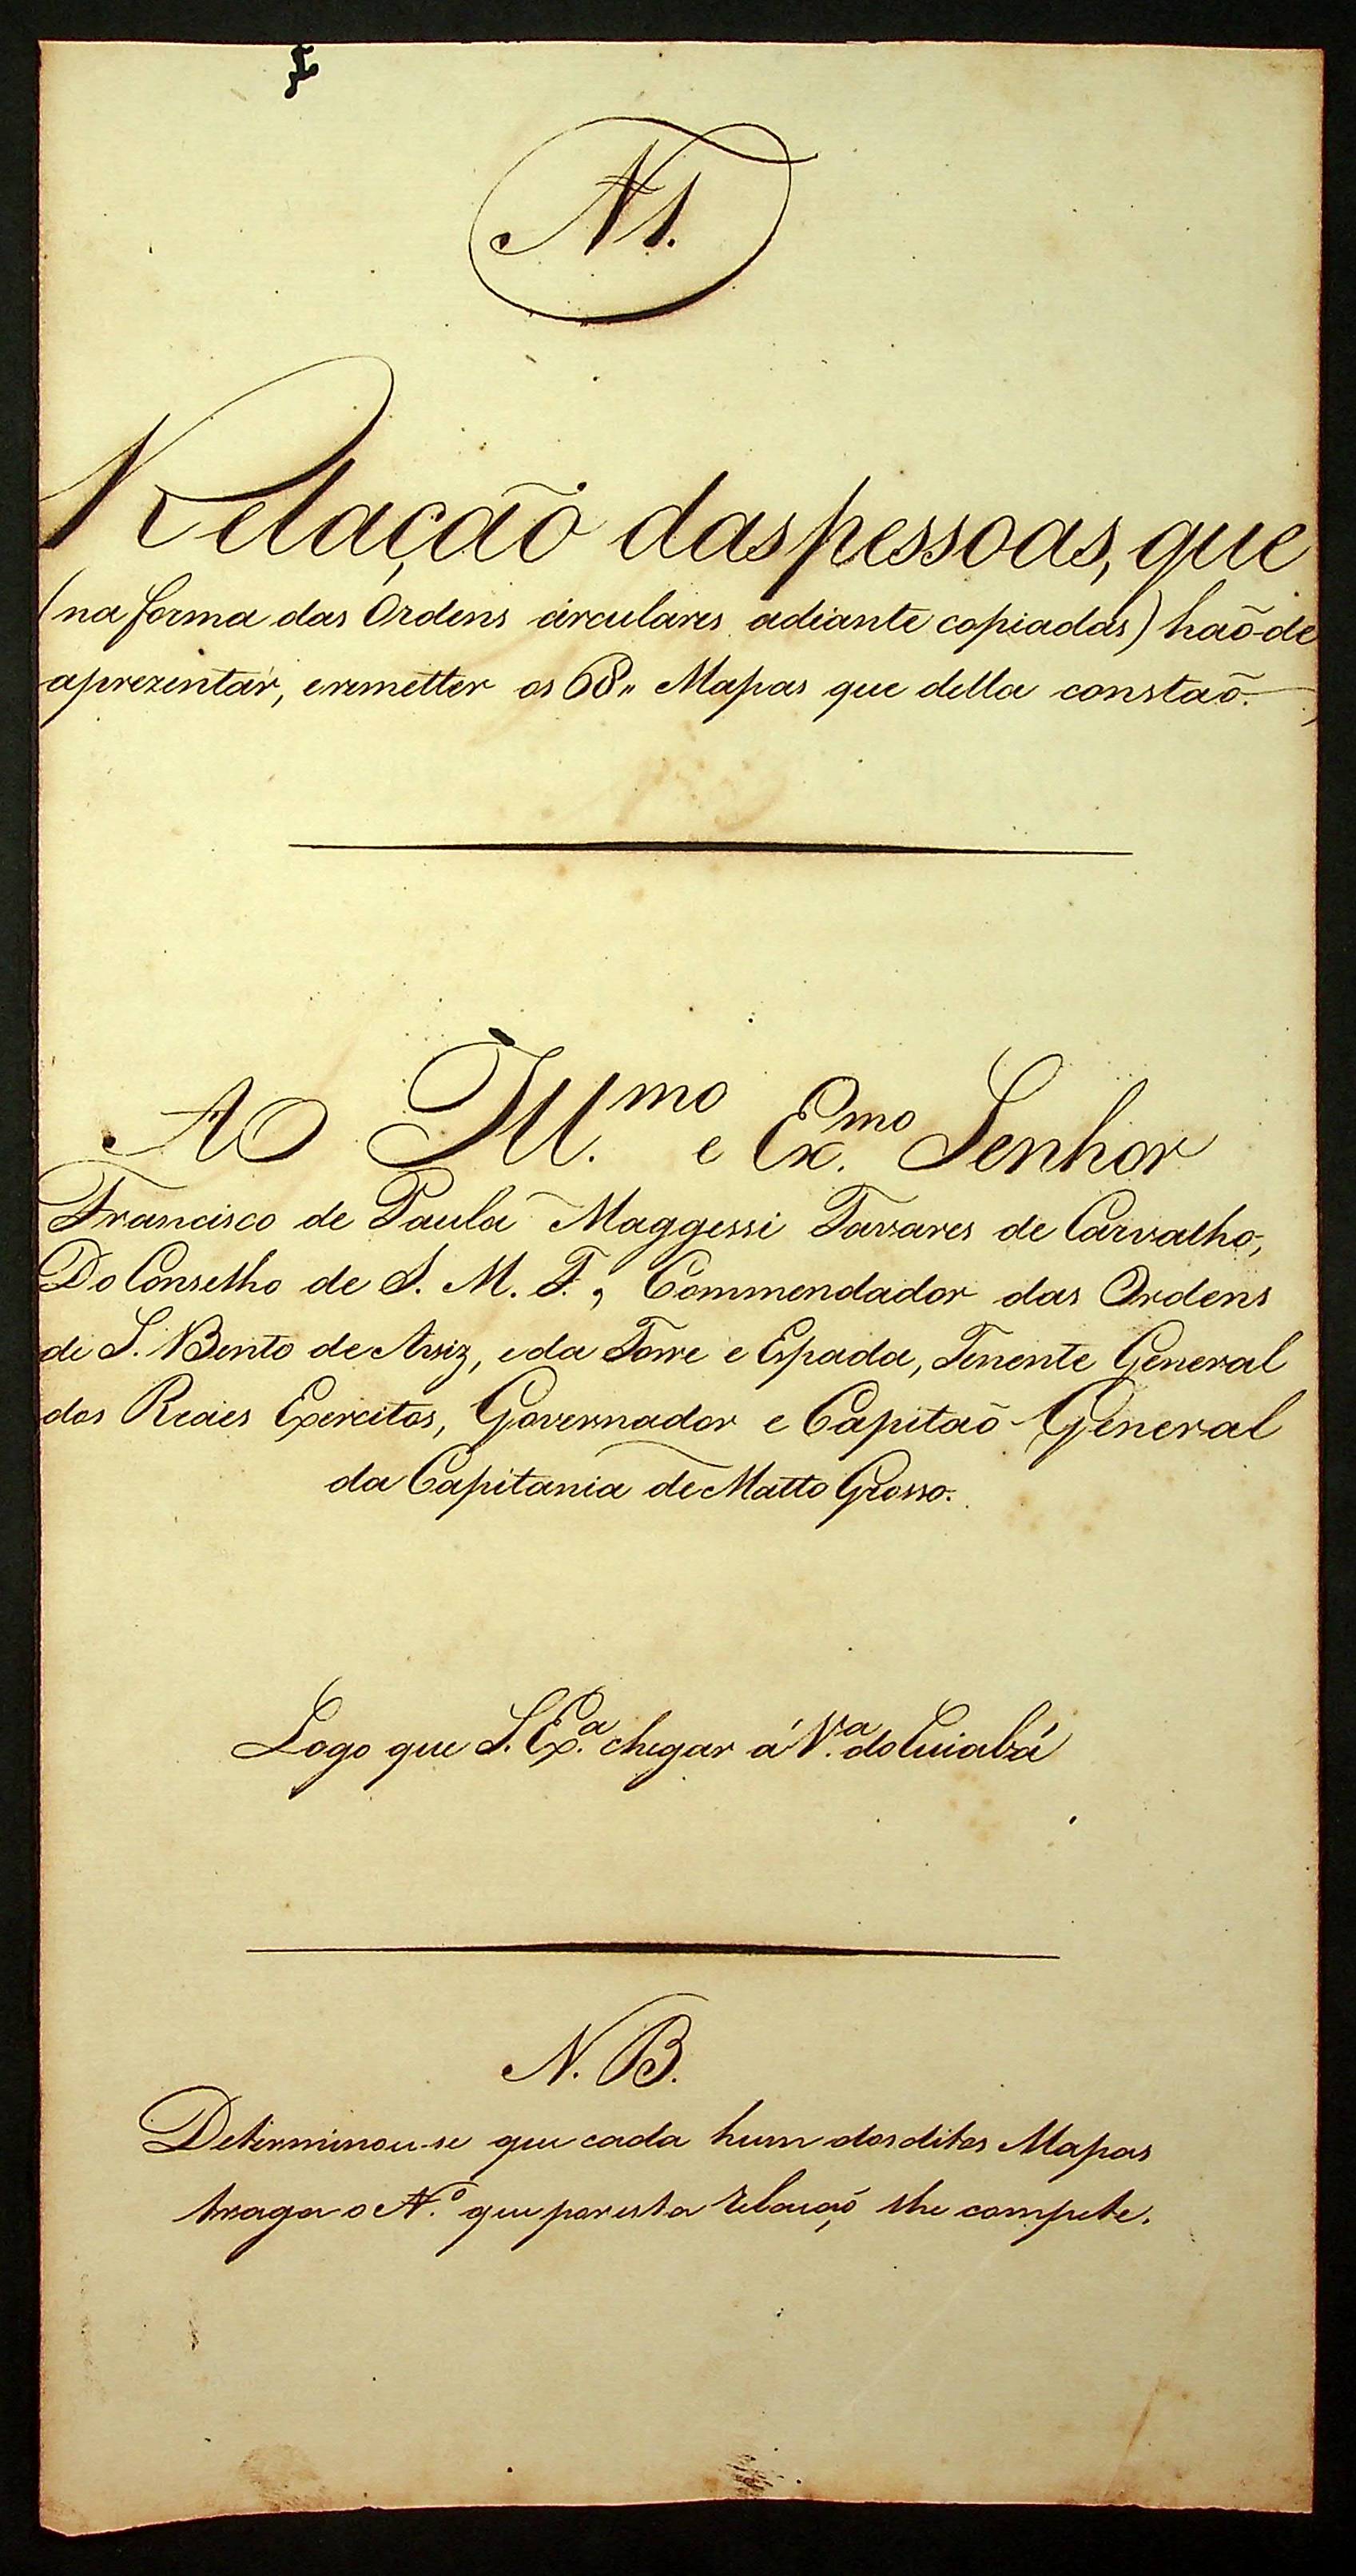 N 1.
Relação das pessoas, que
(na forma das Ordens circulares adiante copiadas) haõ-de
aprezentar, eremetter os 68,, Mapas que della constaõ.
Ao Ill.mo e Ex.mo Senhor
Francisco de Paula Maggessi Tavares de Carvalho,
Do Conselho de S. M. F., Commendador das Ordens
de S. Bento de Aviz, e da Torre e Espada, Tenente General
dos Reaes Exercitos, Governador e Capitaõ General
da Capitania de Matto Grosso.
Logo que S. Ex.a chegar á V.a do Cuiabá
N. B.
Determinou-se que cada hum dos ditos Mapas
traga o N.o que por esta relaçaõ lhe compete.